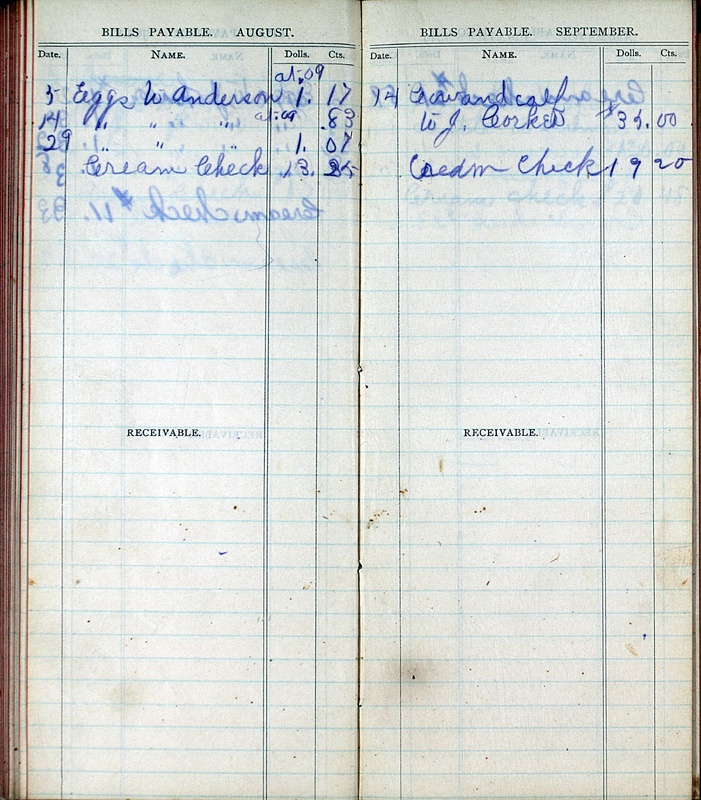 BILLS PAYABLE. AUGUST.
Date. NAME. Dolls. Cts.
at .09
5 Eggs W Anderson 1. 17
14 " " " at .09 .83
29 " " 1. 07
Cream Check 13.
RECEIVABLE.
BILLS PAYABLE. SEPTEMBER.
Date. NAME. Dolls. Cts.
14 Cow and calf
to J. $35.00
Cream Check 19 20
RECEIVABLE.